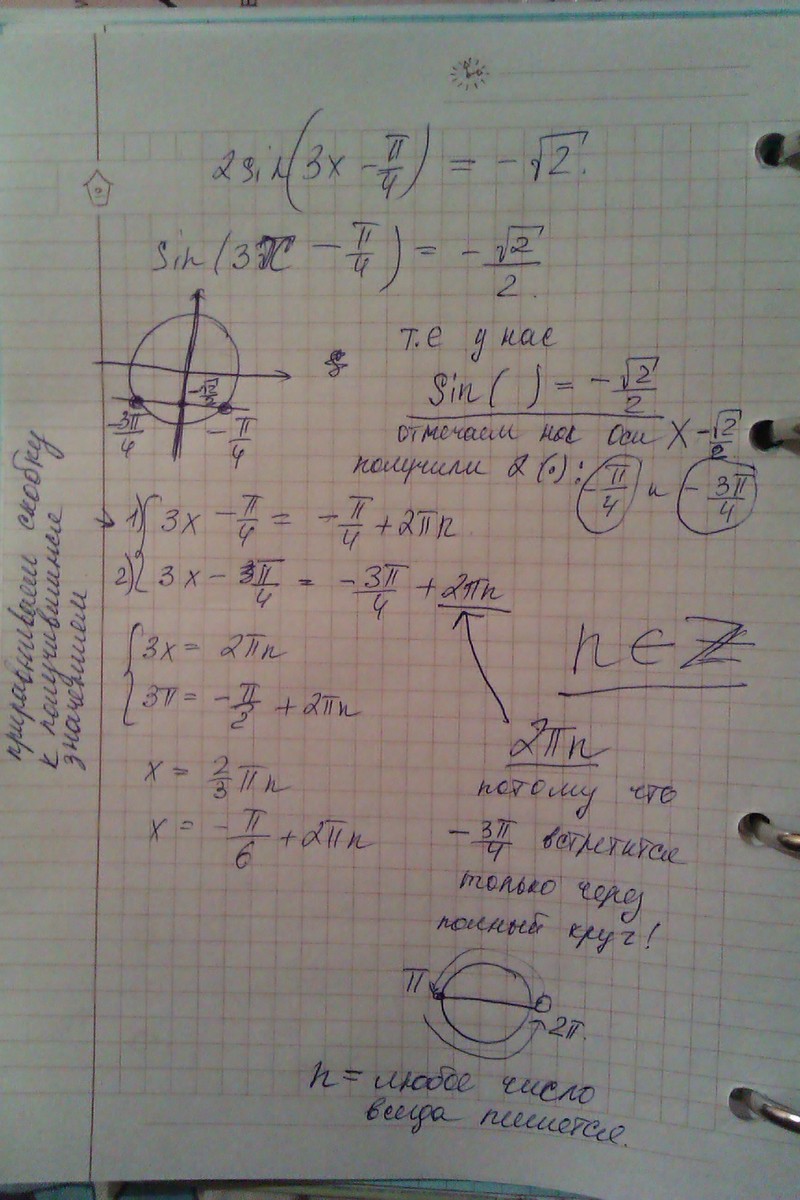 2sin(3x - π/4) = -√2.
sin(3x - π/4) = -√2/2.
т.е у нас
sin( ) = -√2/2
отмечаем нос оси X -√2/2
получили 2 (·): -π/4 и -3π/4
-√2/2
-3π/4
-π/4
приравниваем скобку
к получившимся
значением
1) 3x - π/4 = -π/4 + 2πn
2) 3x - 3π/4 = -3π/4 + 2πn
n ∈ Z
3x = 2πn
3π = -π/2 + 2πn
x = 2/3 πn
x = -π/6 + 2πn
2πn
потому что
-3π/4 встретится
только через
полный круг!
π
0
2π.
n = любое число
всегда пишется.